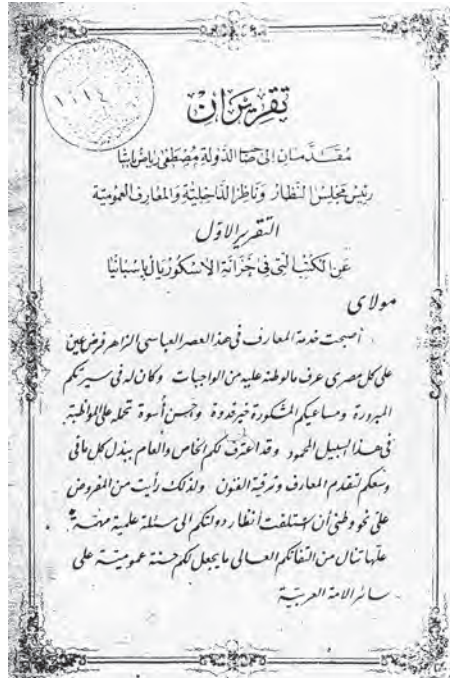 ١٠١٤
تقريران
مقدمان إلى صاحب الدولة مصطفى رياض باشا
رئيس مجلس النظار وناظر الداخلية والمعارف العمومية
التقرير الاول
عن الكتب التى فى خزانة الاسكوريال باسبانيا
مولاى
أصبحت خدمة المعارف فى هذا العصر العباسى الزاهر فرض عين
على كل مصرى عرف ما لوطنه عليه من الواجبات وكان له فى سيرتكم
المبرورة ومساعيكم المشكورة خير قدوة وأحسن أسوة تحمله على المواظبة
فى هذا السبيل المحمود وقد اعترف لكم الخاص والعام ببذل كل ما فى
وسعكم لتقدم المعارف وترقية الفنون ولذلك رأيت من المفروض
على نحو وطنى أن أستلفت أنظار دولتكم الى مسئلة علمية مهمة
علها تنال من التفاتكم العالى ما يجعل لكم حسنة عمومية على
سائر الامة العربية